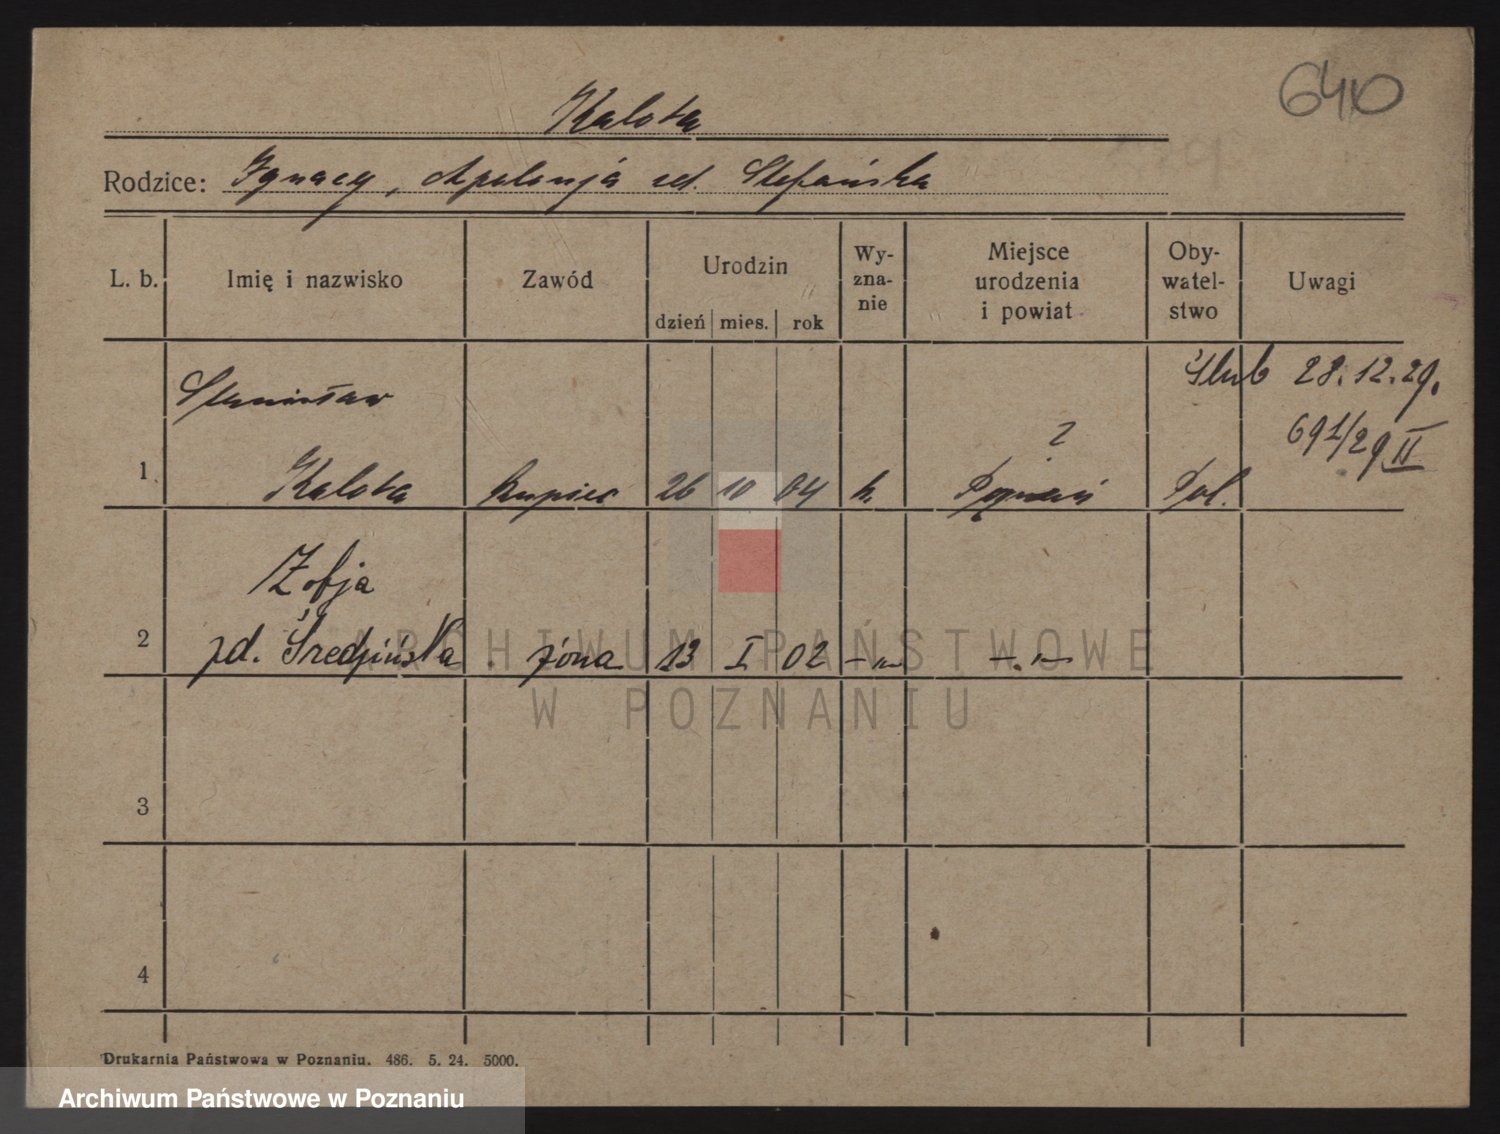 640
Kalota
Rodzice: Ignacy, Apolonja zd. Stefańska
L. b. Imię i nazwisko Zawód Urodzin dzień mies. rok Wy-zna-nie Miejsce urodzenia i powiat Oby-watel-stwo Uwagi
Stanisław Ślub 28.12.29.
? 691/29 II
1 Kalota kupiec 26 10 04 k. Poznań Pol.
Zofja
2 zd. Średzińska . żona 13 I 02 - „ - - „ -
3
4
Drukarnia Państwowa w Poznaniu. 486. 5. 24. 5000.
ARCHIWUM PAŃSTWOWE
W POZNANIU
Archiwum Państwowe w Poznaniu